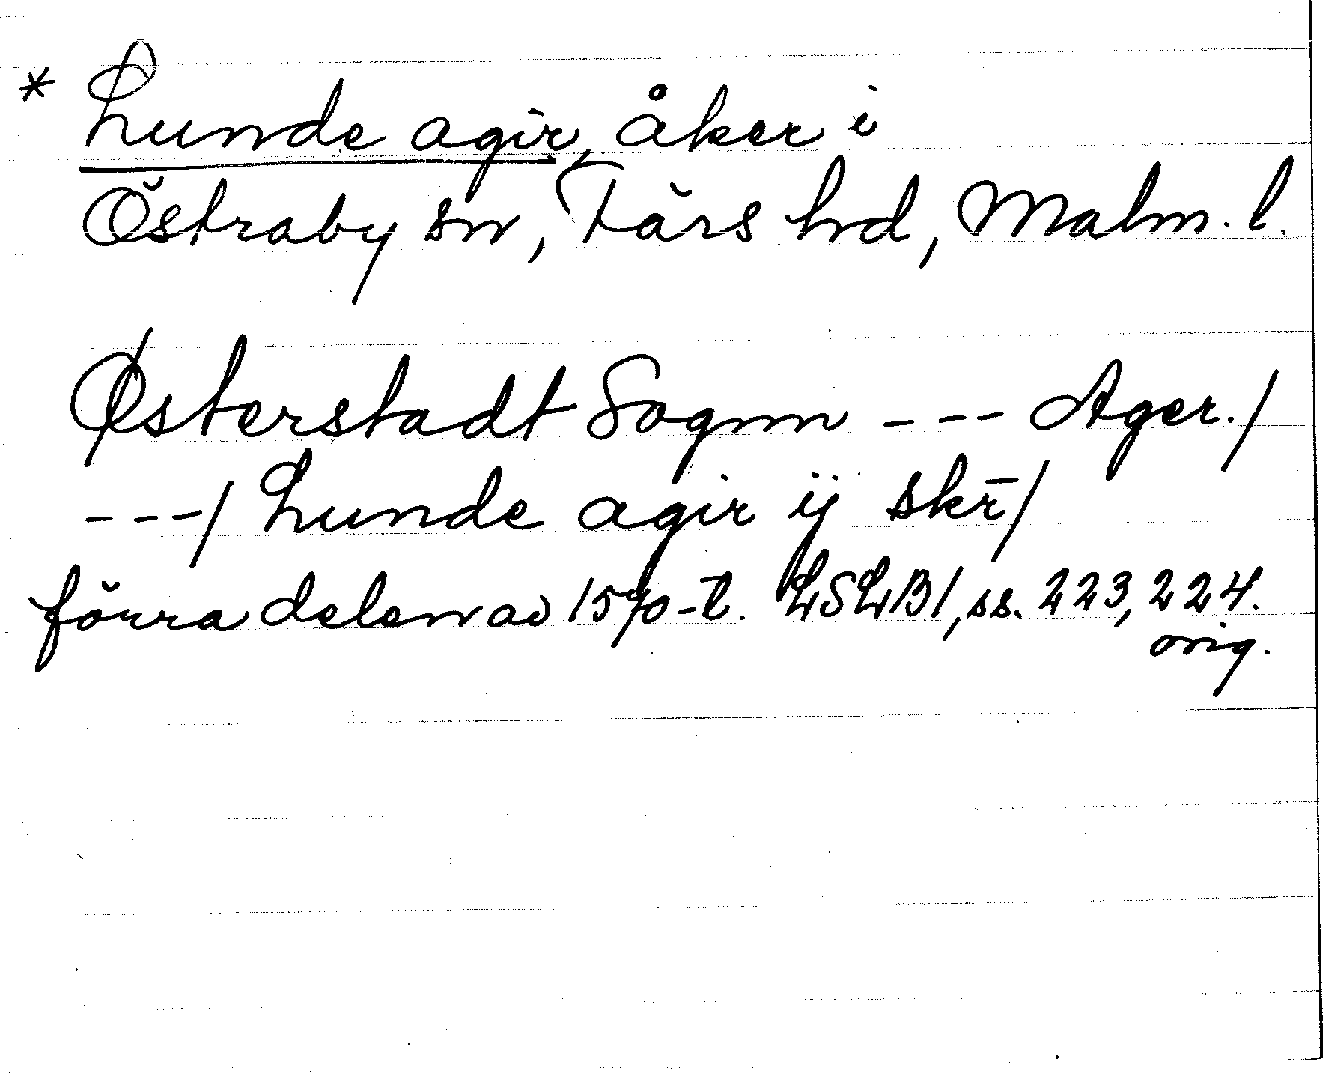 * Lunde agir, åker i
Östraby sn, Färs hd, Malm. l.
Østerstadt Sognn --- Ager./
---/ Lunde agir ij skr̄/
förra delen av 1570-t. LSLB1, ss. 223, 224.
orig.